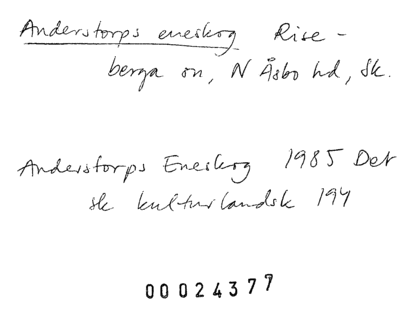 Anderstorps eneskog Rise-
berga sn, N Åsbo hd, Sk.
Anderstorps Eneskog 1985 Det
sk kulturlandsk 194
00024377